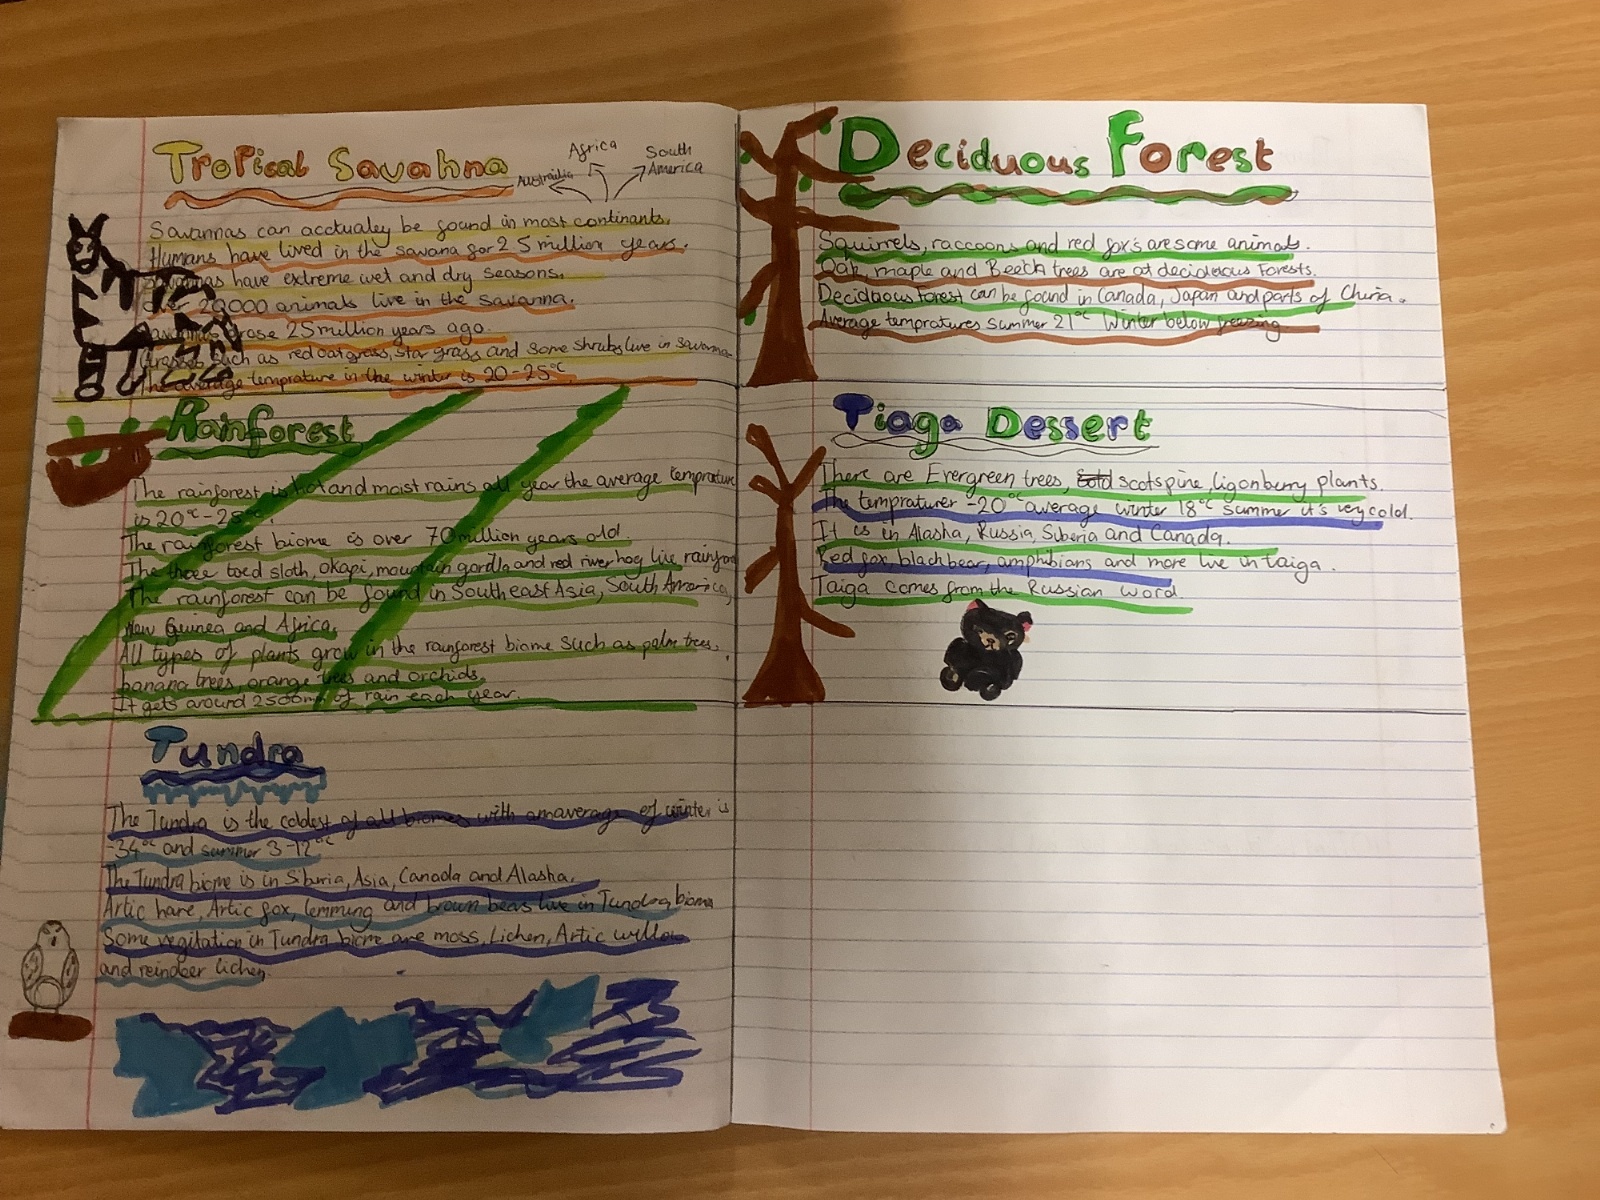 Tropical Savahna
Australia
Africa
South
America
Savannas can acctualey be found in most continants.
Humans have lived in the savana for 25 million years.
Savannas have extreme wet and dry seasons.
Over 20000 animals live in the savanna.
Savannas arose 25 million years ago.
Grasses such as red oat grass, star grass and some shrubs live in savanna
The average temprature in the winter is 20-25°C
Rainforest
The rainforest is hot and moist rains all year the average temprature
is 20°C-25°C.
The rainforest biome is over 70 million years old.
The three toed sloth, okapi, mountain gordla and red river hog live
The rainforest can be found in Southeast Asia, South America,
New Guinea and Africa.
All types of plants grow in the rainforest biome such as palm trees,
banana trees, orange trees and orchids.
It gets around 2500mm of rain each year.
Tundra
The Tundra is the coldest of all biomes with an average of winter is
-34°C and summer 3-12°C
The Tundra biome is in Siberia, Asia, Canada and Alasha.
Artic hare, Artic fox, lemming and brown beas live in Tundra bioma
Some vegitation in Tundra biome are moss, Lichen, Artic willow
and reindeer lichen.
Deciduous Forest
Squirrels, raccoons and red fox's are some animals.
Oak, maple and Beech trees are at deciduous Forests.
Deciduous Forest can be found in Canada, Japan and parts of China.
Average tempratures summer 21°C Winter below freezing
Tiaga Dessert
There are Evergreen trees, scotspine, ligonberry plants.
The tempraturer -20°C average winter 18°C summer it's very cold.
It is in Alasha, Russia, Siberia and Canada.
Red fox, black bear, amphibians and more live in taiga.
Taiga comes from the Russian word.